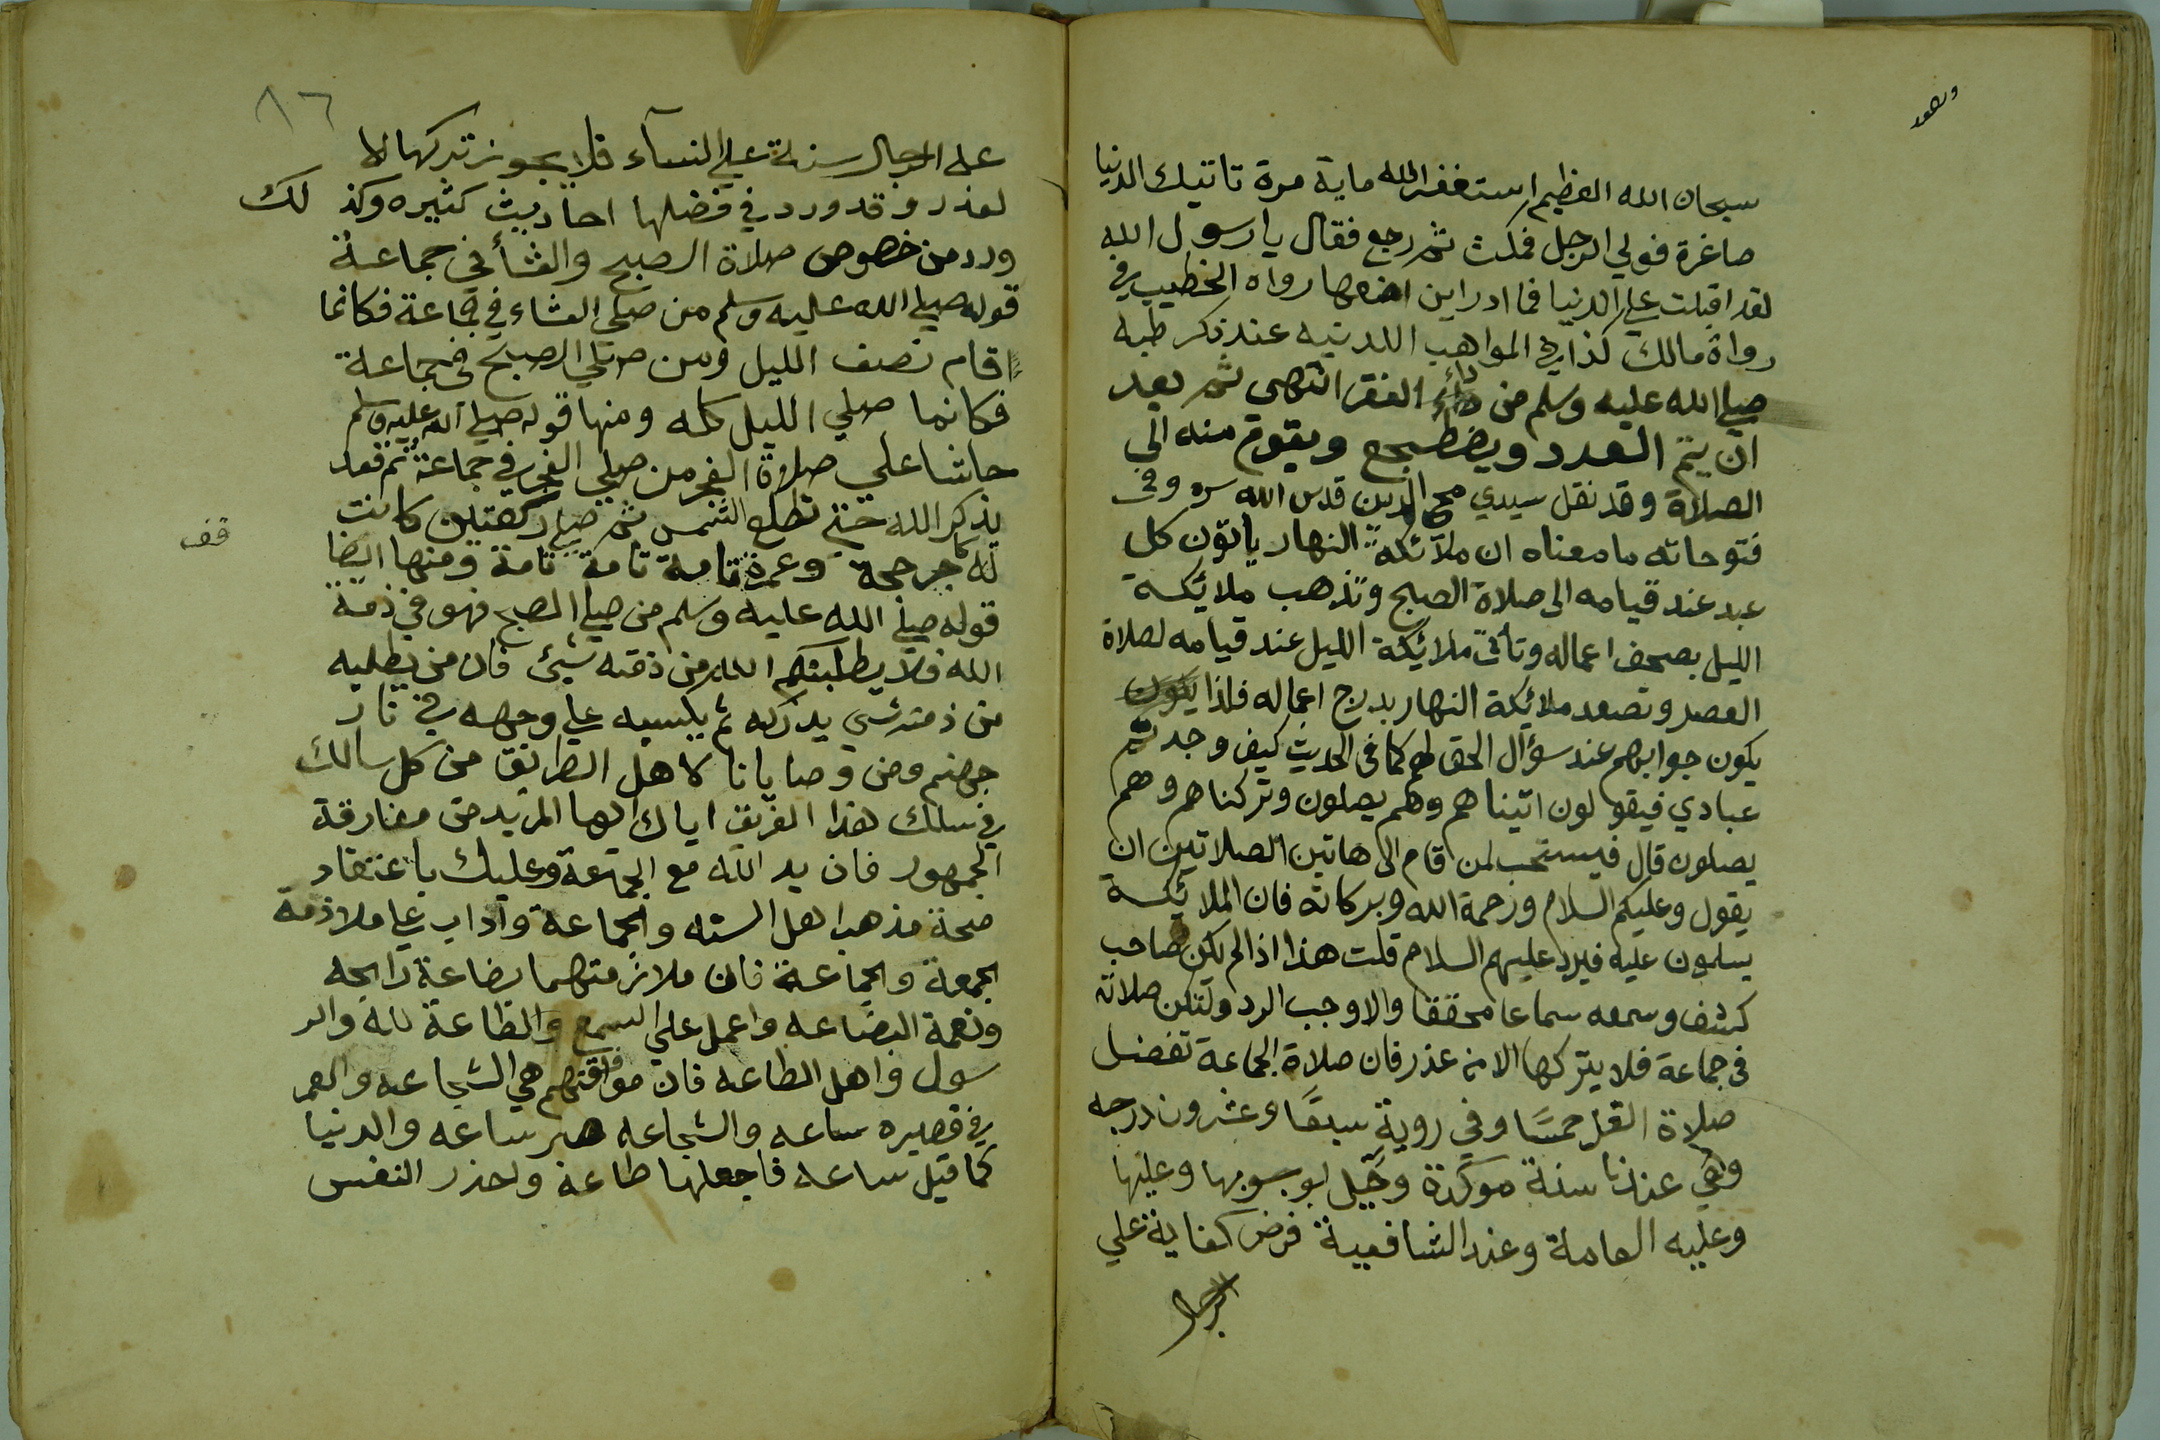 وبحمد
سبحان الله العظيم استغفر الله ماية مرة تاتيك الدنيا
صاغرة فولي الرجل فمكث ثم رجع فقال يا رسول الله
لقد اقبلت علي الدنيا فما ادر اين اضعها رواه الخطيب في
رواة مالك كذا في المواهب اللدنيه عند ذكر طبه
صلي الله عليه وسلم من داء الفقر انتهى ثم بعد
ان يتم العدد ويضطجع ويقوم منه الي
الصلاة وقد نقل سيدي محي الدين قدس الله سره وفي
فتوحاته ما معناه ان ملآئكة النهار ياتون كل
عبد عند قيامه الى صلاة الصبح وتذهب ملائكة
الليل بصحف اعماله وتأتي ملائكة الليل عند قيامه لصلاة
العصر وتصعد ملائكة النهار بدرج اعماله فلذا يكون
يكون جوابهم عند سؤال الحق لهم كما في الحديث كيف وجدتم
عبادي فيقولون اتيناهم وهم يصلون وتركناهم وهم
يصلون قال فيستحب لمن قام الى هاتين الصلاتين ان
يقول وعليكم السلام ورحمة الله وبركاته فان الملائكة
يسلمون عليه فيرد عليهم السلام قلت هذا اذا لم يكن صاحب
كشف وسمعه سماعا محققا والا وجب الرد ولتكن صلاته
في جماعة فلا يتركها الا من عذر فان صلاة الجماعة تفضل
صلاة الفذ خمسًا وفي روية سبعًا وعشرون درجه
وهي عندنا سنة موكدة وقيل بوجوبها وعليها
وعليه العاملة وعند الشافعية فرض كفاية علي
الرجال
٨٦
على الرجال سنة علي النسآء فلا يجوز تركها الا
لعذر وقد ورد في فضلها احاديث كثيره وكذ لك
ورد من خصوص صلاة الصبح والعشأ في جماعة
قوله صلي الله عليه وسلم من صلي العشاء في جماعة فكانما
اقام نصف الليل ومن صلي الصبح في جماعة
فكانما صلي الليل كله ومنها قوله صلي الله عليه وسلم
حاثا علي صلاة الفجر من صلي الفجر في جماعة ثم قعد
يذكر الله حتي تطلع الشمس ثم صلي ركعتين كانت
له كاجر حجة وعمرة تامة تامة تامة ومنها ايضا
قف
قوله صلي الله عليه وسلم من صلي الصبح فهو في ذمة
الله فلا يطلبنكم الله من ذمته شيئ فان من يطلبه
من ذمته شي يدركه ثم يكبه علي وجهه في نار
جهنم ومن وصايانا لاهل الطريق من كل سالك
في سلك هذا الفريق اياك ايها المريد من مفارقة
الجمهور فان يد الله مع الجمعة وعليك باعتقاد
صحة مذهب اهل السنه والجماعة واداب علي ملازمة
الجمعة والجماعة فان ملازمتهما بضاعة رابحه
ونعمة البضاعه واعمل علي السمع والطاعة لله والر
سول واهل الطاعه فان موافقتهم هي الشجاعه والعمر
في قصيره ساعه والشجاعه صبر ساعه والدنيا
كما قيل ساعه فاجعلها طاعة واحذر النفس